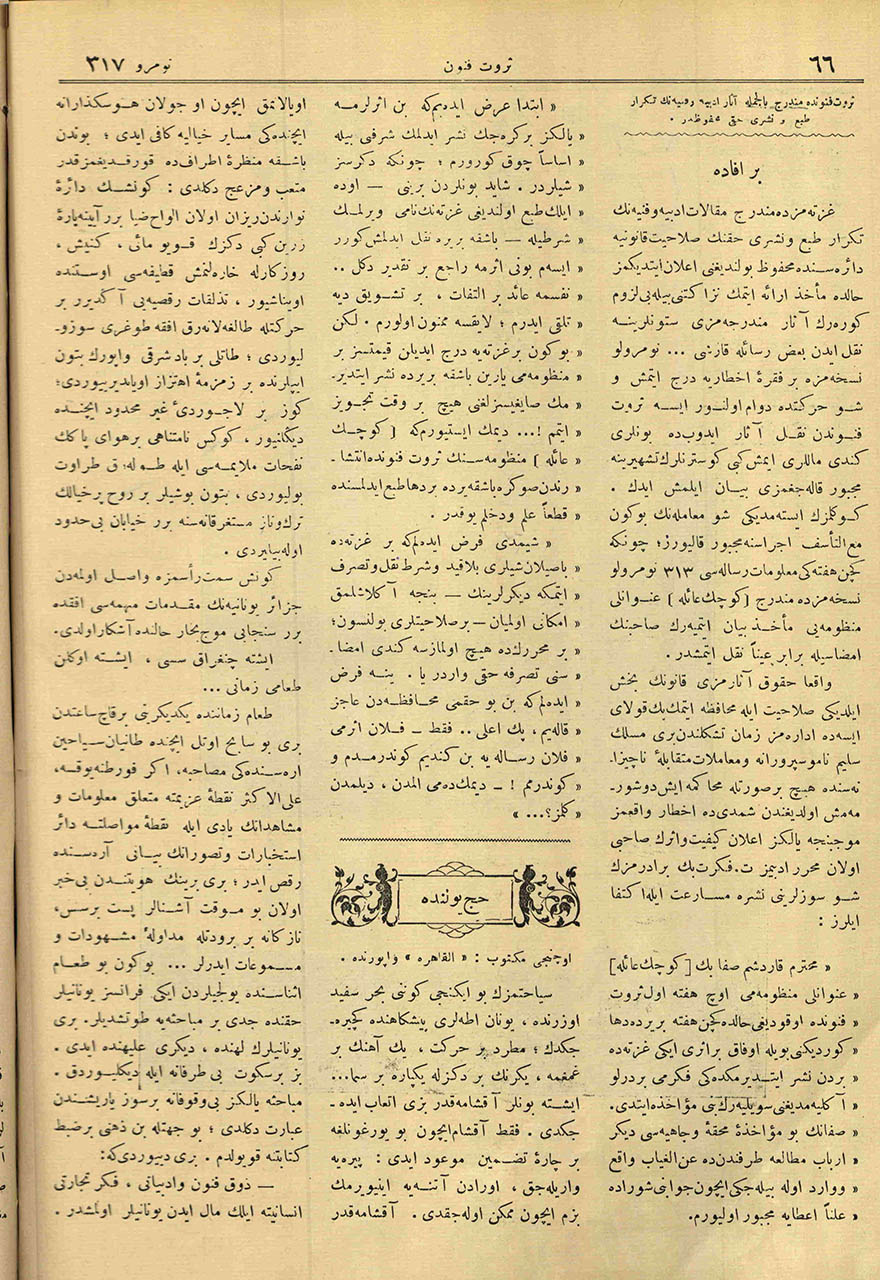 ٦٦
ثروت فنون
نومرو ٣١٧
ثروت فنونده مندرج بالجمله آثار ادبیه و فنیه نك تكرار
طبع و نشری حقی محفوظدر .
بر افاده
غزته مزده مندرج مقالات ادبیه و فنیه نك
تكرار طبع و نشری حقنك صلاحیت قانونیه
دائره سنده محفوظ بولندیغی اعلان ایتدیكمز
حالده مأخذ ارائه ایتمك نزاكتنی بیله بی لزوم
كوره رك آثار مندرجه مزی ستونلرینه
نقل ایدن بعض رسائله قارشی ... نومرولو
نسخه مزه بر فقرۀ اخطاریه درج ایتمش و
شو حركتده دوام اولنور ایسه ثروت
فنوندن نقل آثار ایدوب ده بونلری
كندی ماللری ایمش كبی كوسترنلرك تشهیرینه
مجبور قاله جغمزی بیان ایلمش ایدك .
كوكلمزك ایسته مدیكی شو معامله نك بوكون
مع التأسف اجراسنه مجبور قالیورز؛ چونكه
كچن هفته كی معلومات رساله سی ٣١٣ نومرولو
نسخه مزده مندرج [كوچك عائله] عنوانلی
منظومه یی مأخذ بیان ایتمیه رك صاحبنك
امضاسیله برابر عیناً نقل ایتمشدر .
واقعا حقوق آثارمزی قانونك بخش
ایلدیكی صلاحیت ایله محافظه ایتمك پك قولای
ایسه ده اداره مز زمان تشكلندن بری مسلك
سلیم ناموسپرورانه و معاملات متقابلۀ ناچیزا-
نه سنده هیچ بر صورتله محاكمه ایش دوشور-
مه مش اولدیغندن شمدی ده اخطار واقعمز
موجبنجه یالكز اعلان كیفیت و اثرك صاحبی
اولان محرر ادیبمز ت. فكرت بك برادرمزك
شو سوزلرینی نشره مسارعت ایله اكتفا
ایلرز :
« محترم قارداشم صفا بك [كوچك عائله]
« عنوانلی منظومه می اوچ هفته اول ثروت
« فنونده اوقودیغی حالده كچن هفته بر یرده دها
« كوردیكنی بویله اوفاق بر اثری ایكی غزته ده
« بردن نشر ایتدیرمكده كی فكرمی بردرلو
« آكلیه مدیغنی سویلیه رك بنی مؤاخذه ایتدی.
« صفانك بو مؤاخذۀ محقه و جاهیه سی دیكر
« ارباب مطالعه طرفندن ده عن الغیاب واقع
« و وارد اوله بیله جكی ایچون جوابنی شوراده
« علناً اعطایه مجبور اولیورم.
« ابتدا عرض ایده یم كه بن اثرلرمه
« یالكز بر كره جك نشر ایدلمك شرفنی بیله
« اساساً چوق كورورم ؛ چونكه دكرسز
« شیلردر . شاید بونلردن برینی — اوده
« ایلك طبع اولندیغی غزته نك نامی ویرلمك
« شرطیله — باشقه بر یره نقل ایدلمش كورر
« ایسه م بونی اثرمه راجع بر تقدیر دكل ..
« نفسمه عائد بر التفات ، بر تشویق دیه
« تلقی ایدرم ؛ لایقسه ممنون اولورم . لكن
« بوكون بر غزته یه درج ایدیلن قیمتسز بر
« منظومه می یارین باشقه بر یرده نشر ایتدیر-
« مك صایغیسزلغنی هیچ بر وقت تجویز
« ایتمم !... دیمك ایستیورم كه [ كوچك
« عائله ] منظومه سنك ثروت فنونده انتشا-
« رندن صوكره باشقه یرده بر دها طبع ایدلمسنده
« قطعاً علم و دخلم یوقدر .
« شیمدی فرض ایده لم كه بر غزته ده
« باصیلان شیلری بلاقید و شرط نقل و تصرف
« ایتمكه دیكرلرینك — بنجه آكلاشلمق
« امكانی اولمیان — بر صلاحیتلری بولنسون؛
« بر محررك ده هیچ اولمازسه كندی امضا-
« سنی تصرفه حقی واردر یا . ینه فرض
« ایده لم كه بن بو حقمی محافظه دن عاجز
« قاله یم ، پك اعلی .. فقط — فلان اثرمی
« فلان رساله یه بن كندیم كوندرمدم و
« كوندرمم ! — دیمك ده می المدن ، دیلمدن
« كلمز؟... »
حج یولنده
اوچنجی مكتوب : « القاهره » واپورنده .
سیاحتمزك بو ایكنجی كوننی بحر سفید
اوزرنده ، یونان اطه لری پیشكاهنده كچیره-
جكدك ؛ مطرد بر حركت ، یك آهنك بر
غمغمه ، یكرنك بر دكزله یكپاره بر سما...
ایشته بونلر آقشامه قدر بزی اتعاب ایده-
جكدی . فقط آقشام ایچون بو یورغونلغه
بر چارۀ تضمین موعود ایدی : پیره یه
واریله جق ، اورادن آتنه یه اینیورمك
بزم ایچون ممكن اوله جقدی . آقشامه قدر
اویالانمق ایچون او جولان هوسكذارانه
ایچنده كی مسایر خیالیه كافی ایدی ؛ بوندن
باشقه منظرۀ اطراف ده قورقدیغمز قدر
متعب و مزعج دكلدی : كونشك دائرۀ
نوارندن ریزان اولان الواح ضیا برر آیینه پارۀ
زرین كبی دكزك قویو مائی ، كنیش ،
روزكارله خاره لنمش قطیفه سی اوستنده
اویناشیور ، تذلقات رقصیه یی آكدیرر بر
حركتله طالغه لانه رق افقه طوغری سوزو-
لیوردی ؛ طاتلی بر باد شرقی واپورك بتون
ایپلرنده بر زمزمۀ اهتزاز اویاندیرییوردی؛
كوز بر لاجوردئ غیر محدود ایچنده
دیكلنیور ، كوكس نامتناهی بر هوای پاكك
نفحات ملایمه سی ایله طراوت
بولیوردی ، بتون بو شیلر بر روح پر خیالك
ترك و ناز مستغرقانه سنه برر خیابان بی حدود
اوله بیلیردی .
كونش سمت رأسمزه واصل اولمه دن
جزائر یونانیه نك مقدمات مبهمه سی افقده
برر سنجابی موج بخار حالنده آشكار اولدی.
ایشته چنغراق سسی ، ایشته اوكلن
طعامی زمانی ...
طعام زماننده یكدیكرینی بر قاچ ساعتدن
بری بو سایح اوتل ایچنده طانیان سیاحین
اره سنده كی مصاحبه، اكر فورطنه یوقسه،
علی الاكثر نقطۀ عزیمته متعلق معلومات و
مشاهداتك یادی ایله نقطۀ مواصلته دائر
استخبارات و تصوراتك بیانی آره سنده
رقص ایدر ؛ بری برینك هویتندن بی خبر
اولان بو موقت آشنالر پست پرسس،
نازكانه بر برودتله مداولۀ مشهودات و
مسموعات ایدرلر ... بوكون بو طعام
اثناسنده یولجیلردن ایكی فرانسز یونانیلر
حقنده جدی بر مباحثه یه طوتشدیلر. بری
یونانیلرك لهنده ، دیكری علیهنده ایدی .
بز بر سكوت بی طرفانه ایله دیكلیوردق .
مباحثه یالكز بی وقوفانه بر سوز یاریشندن
عبارت دكلدی ؛ بو جهتله بن ذهنی بر ضبط
كتابتنه قویولدم . بری دییوردی كه:
— ذوق فنون و ادبیاتی ، فكر تجارتی
انسانیته ایلك مال ایدن یونانیلر اولمشدر .